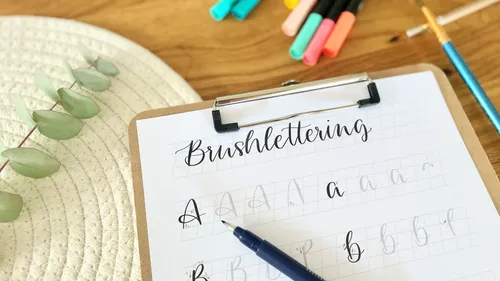 Brushlettering
A A A A a a a
B B B b b b b